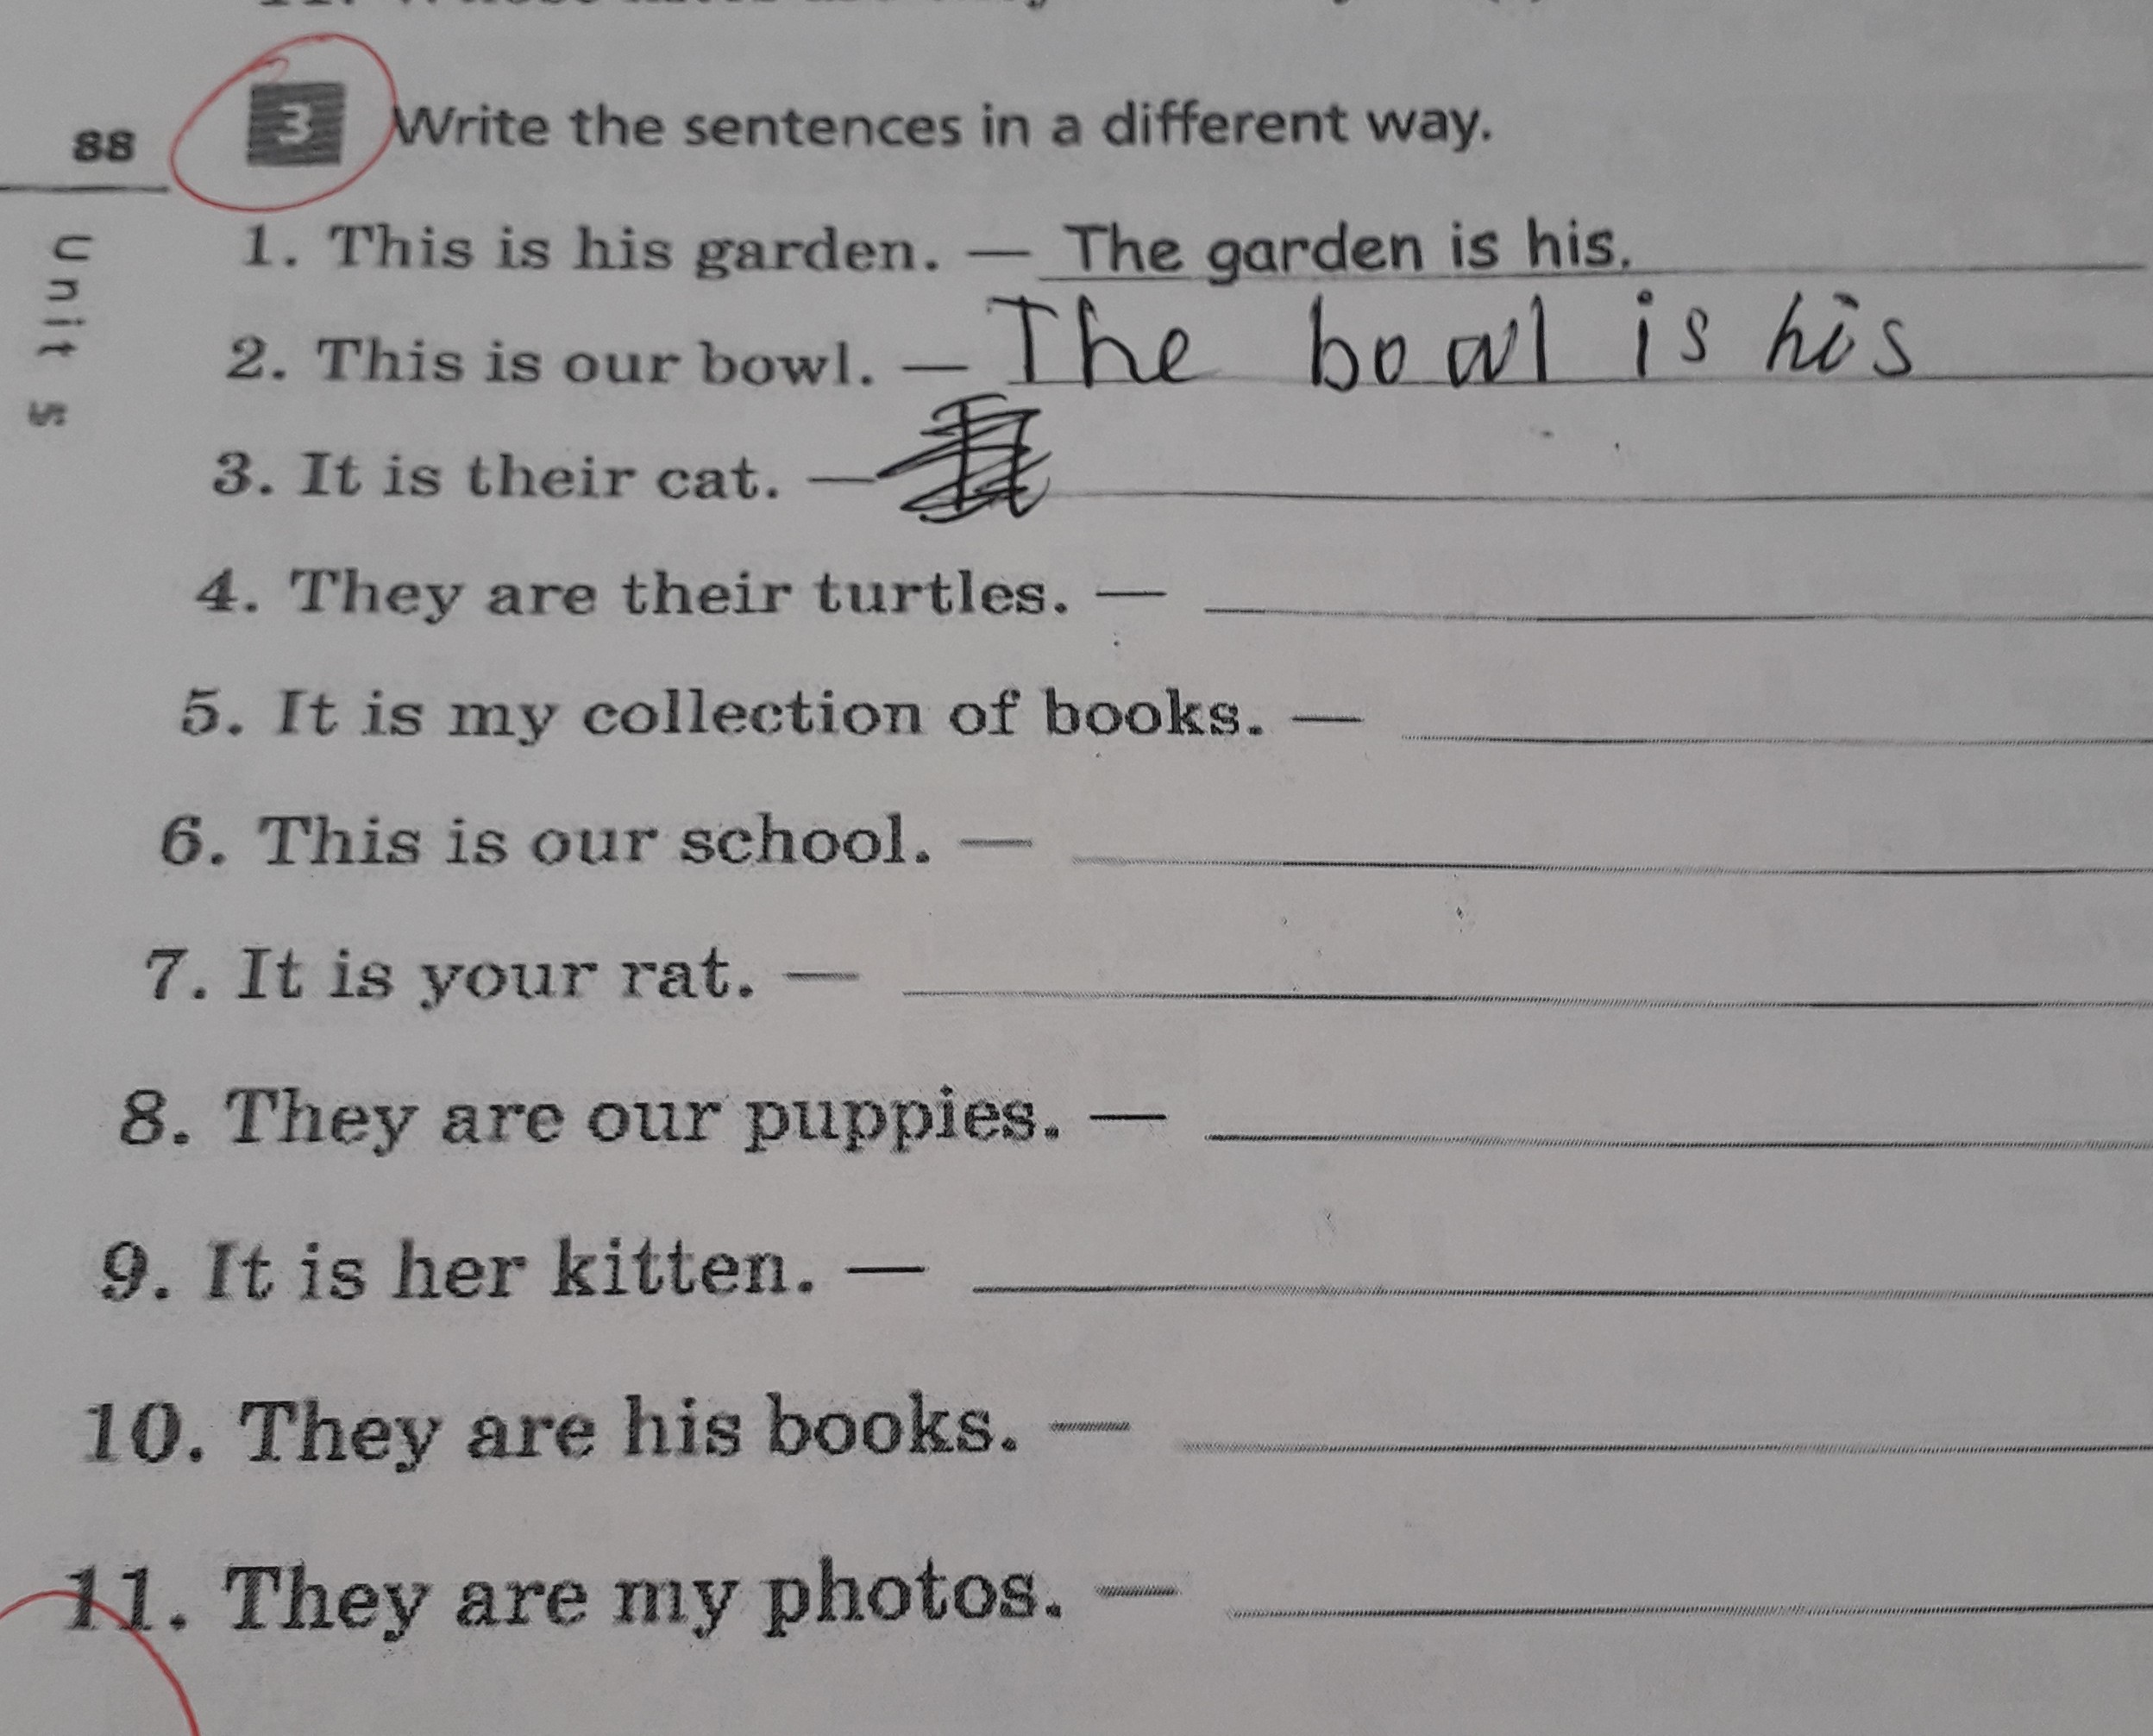 3 Write the sentences in a different way.
88
Unit 5
1. This is his garden. — The garden is his.
2. This is our bowl. — The bowl is his
3. It is their cat. —
4. They are their turtles. —
5. It is my collection of books. —
6. This is our school. —
7. It is your rat. —
8. They are our puppies. —
9. It is her kitten. —
10. They are his books. —
11. They are my photos. —